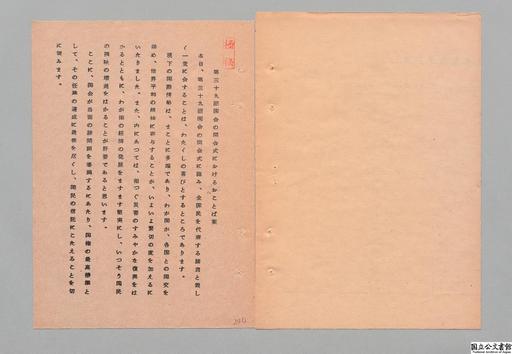 極秘
第三十九回国会の開会式におけるおことば案
本日、第三十九回国会の開会式に臨み、全国民を代表する諸君と親し
く一堂に会することは、わたくしの喜びとするところであります。
現下の国際情勢は、まことに多端であり、わが国が、各国との国交を
深め、世界平和の維持に寄与することが、いよいよ緊切の度を加えるに
いたりました。また、内にあつては、相つぐ災害のすみやかな復興をは
かるとともに、わが国の経済の発展をますます堅実にし、いつそう国民
の福祉の増進をはかることが肝要であると思います。
ここに、国会が当面の諸問題を審議するにあたり、国権の最高機関と
して、その任務の遂行に最善を尽くし、国民の信託にこたえることを切
に望みます。
国立公文書館
National Archives of Japan